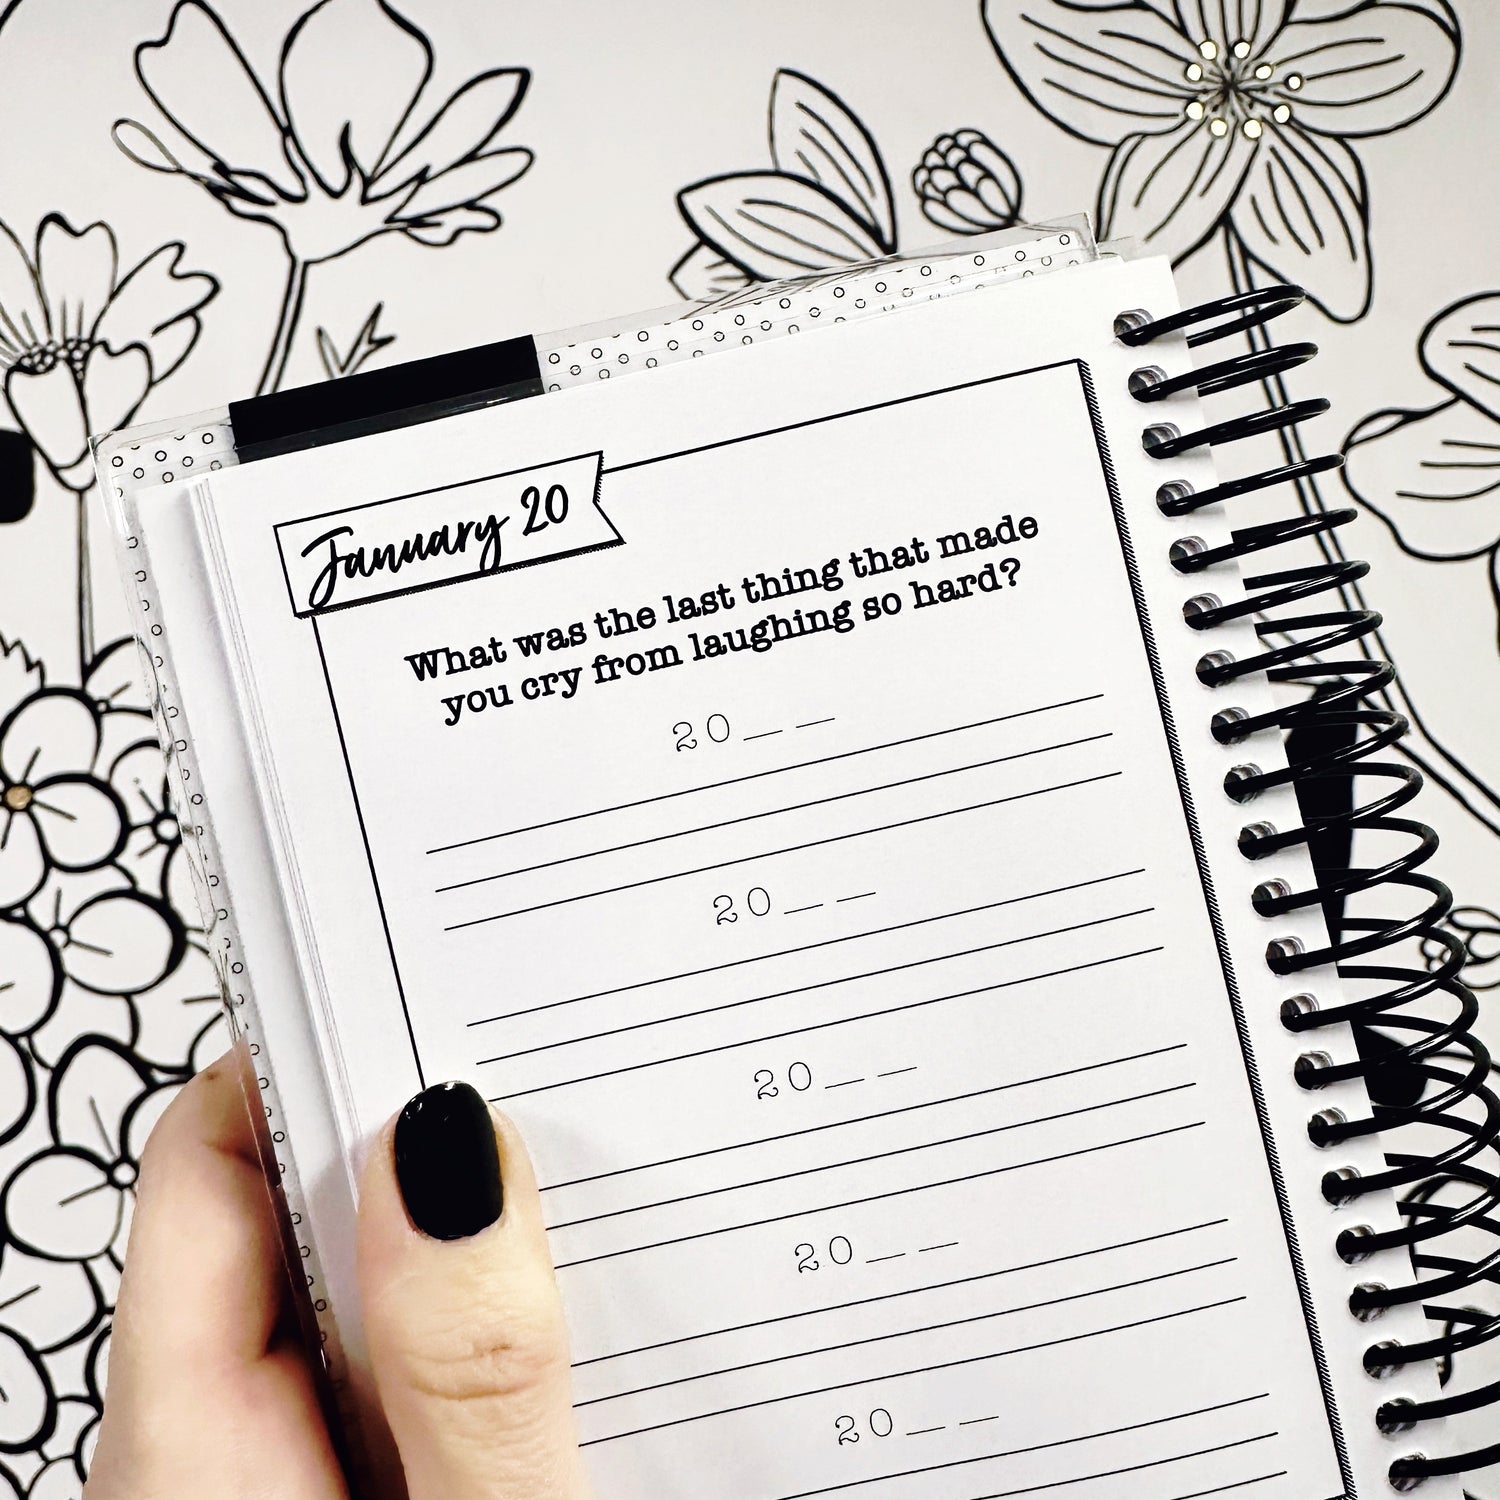 January 20
What was the last thing that made
you cry from laughing so hard?
20__
20__
20__
20__
20__